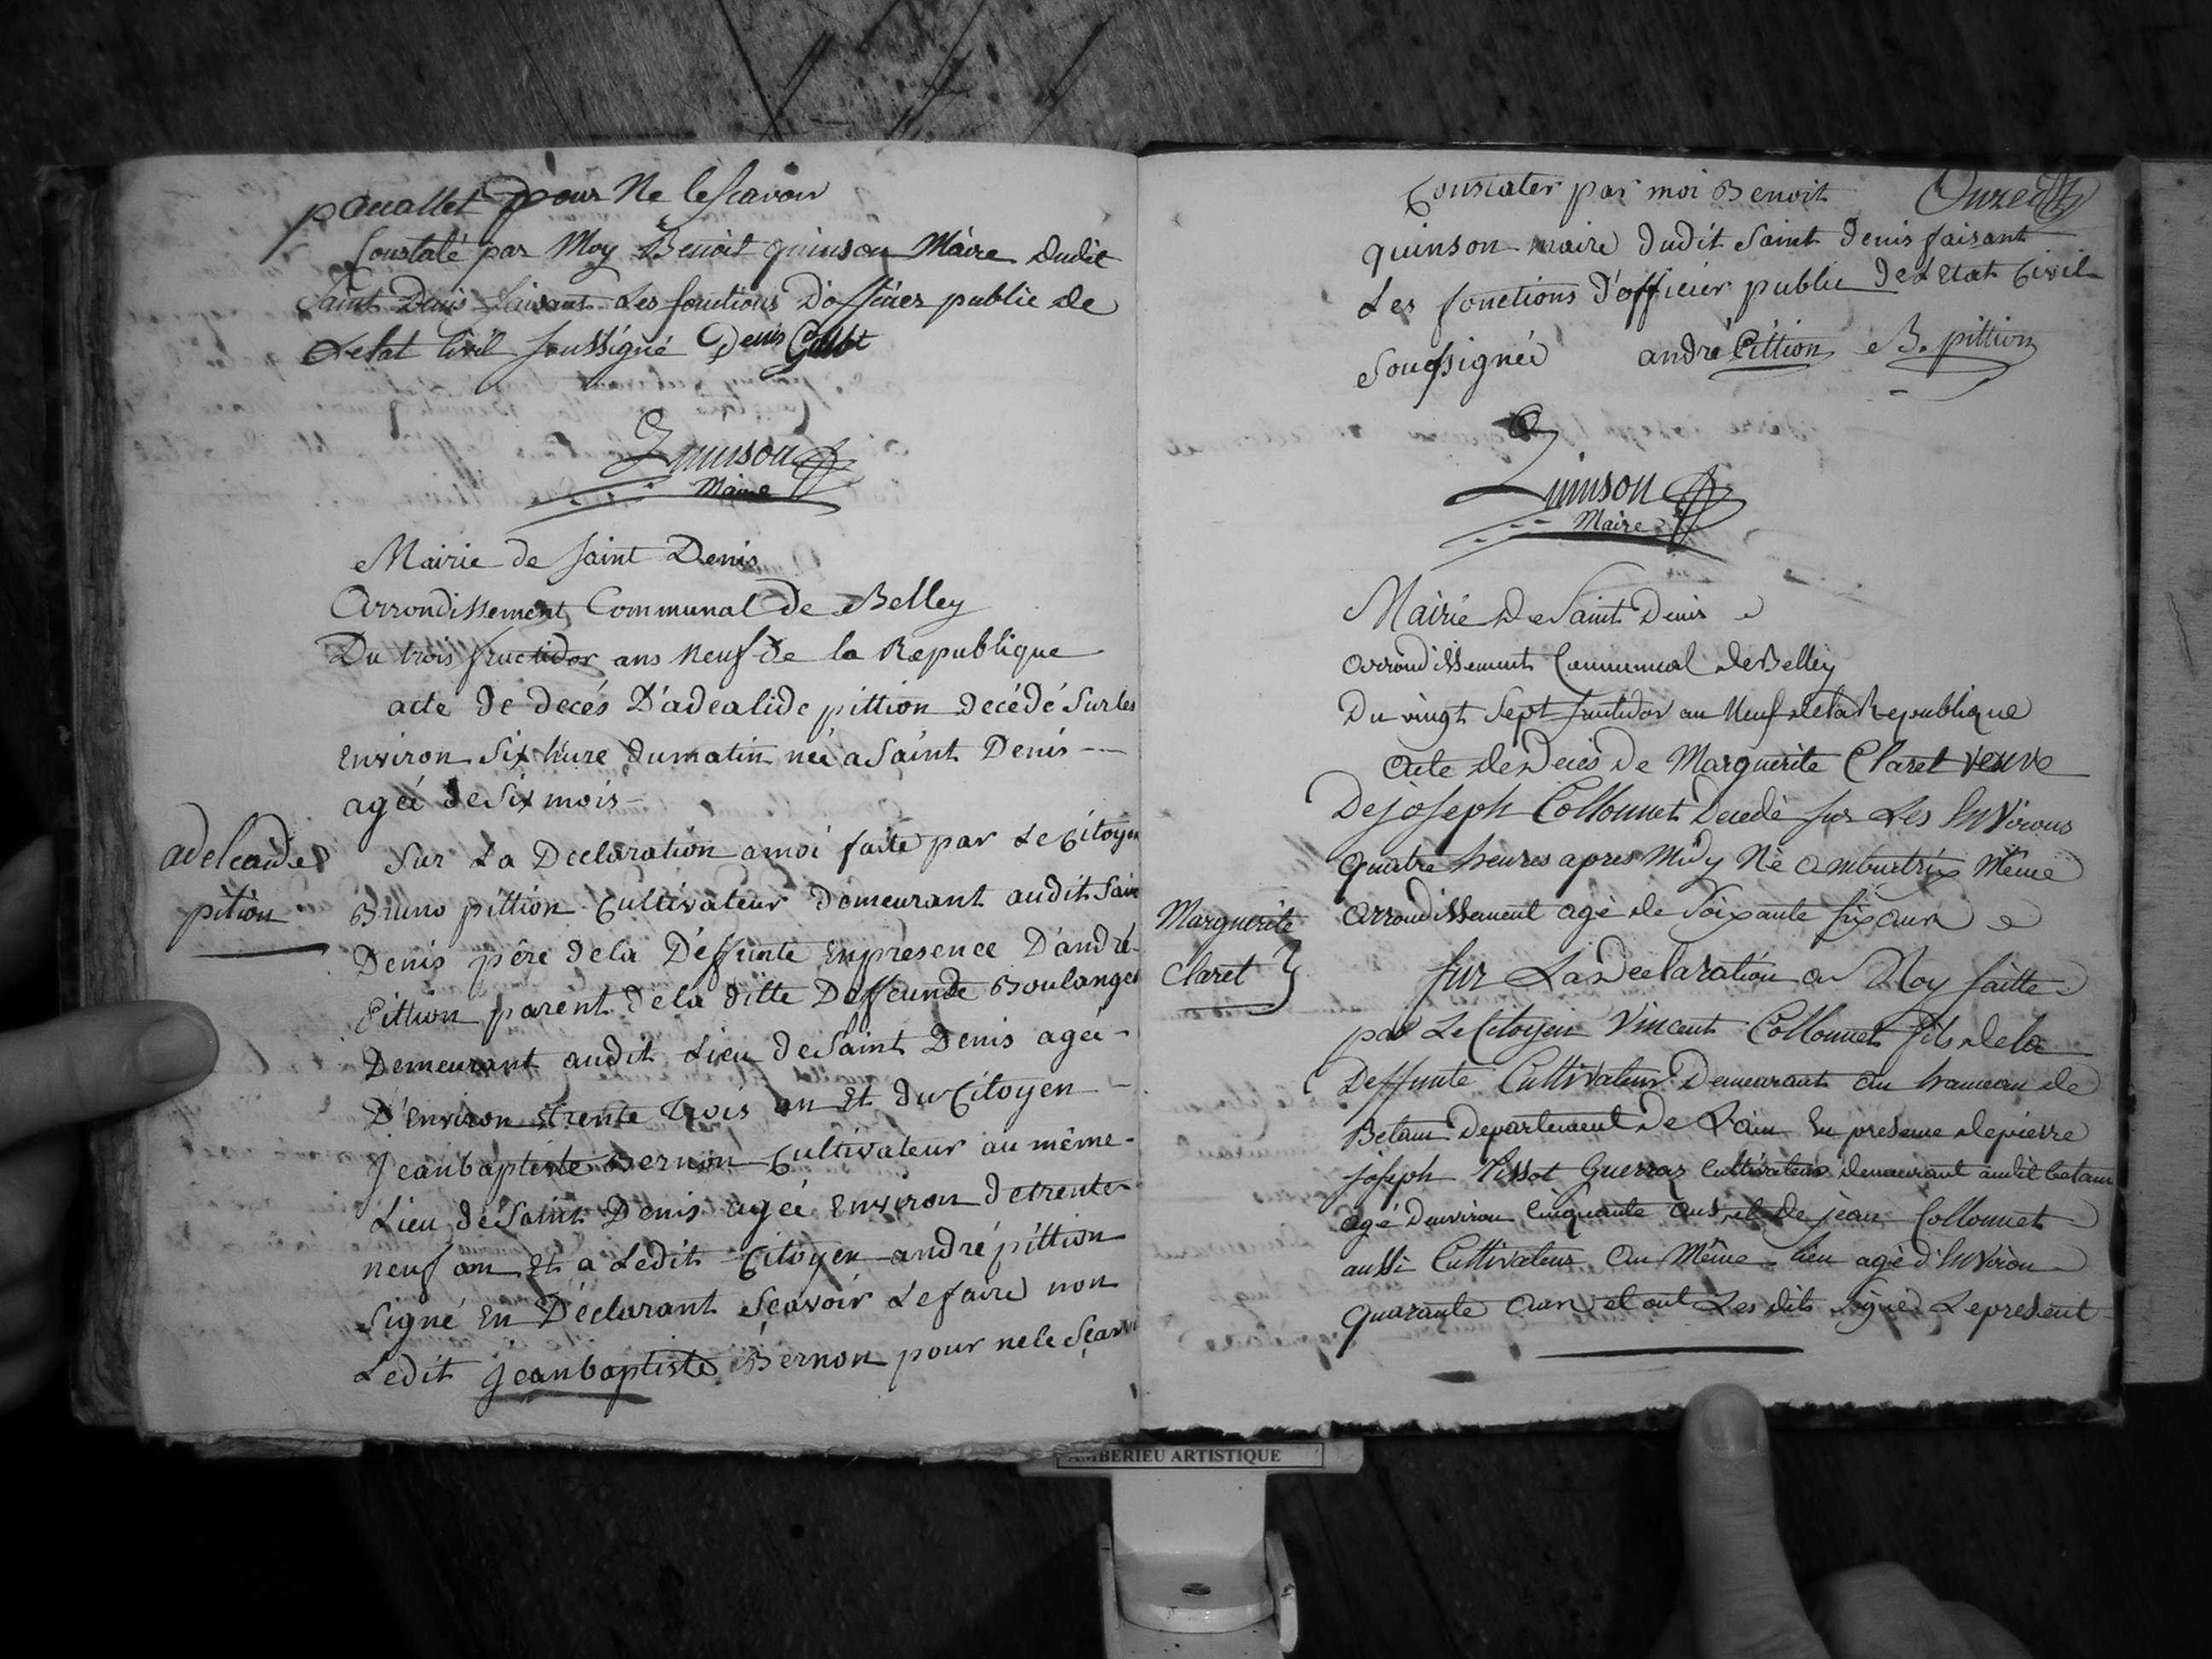 paccallet pour Ne le scavoir
Constaté par Moy Benoit quinson Maire dudit
Saint Denis faisant Les fonctions D'officier public de
Letat Civil soussigné Denis
Quinson
Maire
Mairie de saint Denis
Arrondissement Communal de Belley
Du trois fructidor ans neuf de la Republique
acte de decés D'adealide pittion decédé Sur les
Environ Six hure du matin neé a Saint Denis
ageé de Six mois
adelcaide
pition
Sur La Declaration a moi faite par Le Citoyen
Bruno pittion Cultivateur demeurant audit Sain
Denis pêre de la Deffunte En presence D'andré
Pittion parent de la ditte Deffeunde Boulanger
Demeurant audit Lieu de Saint Denis ageé
D'Environ trente trois an Et du Citoyen
Jean baptiste Bernon Cultivateur au même
Lieu de Saint Denis ageé Environ de trente
neuf an Et a Ledit Citoyen andré pittion
Signé En Déclarant Scavoir Le faire non
Ledit Jean baptiste Bernon pour ne le Scavoi
Constater par moi Benoit
Onze
quinson maire dudit Saint Denis faisant
Les fonctions d'officier public de L'Etat Civil
Soussigneé andré Pittion B. pittion
Quinson
Maire
Mairie De Saint Denis
arrondissement Communal de Belley
Du vingt Sept fructidor an Neuf de la Republique
Acte de Deces De Marguerite Claret veuve
De joseph Collonnet Decedé sur Les Environs
quatre heures apres Midy Né a Même
arrondissement agé de Soixante six ans
Marguerite
Claret
sur La Declaration a Moy faitte
par Le Citoyen Vincent Collonnet fils de la
Deffunte Cultivateur Demeurant au hameau de
Betam Departement De Lain En presence de pierre
joseph Tissot Guerraz Cultivateur demeurant audit betam
agé denviron Cinquante ans et de jean Collonnet
aussi Cultivateur au Même lieu agé d'Environ
quarante ans et ont Les dits signé Le present
AMBERIEU ARTISTIQUE